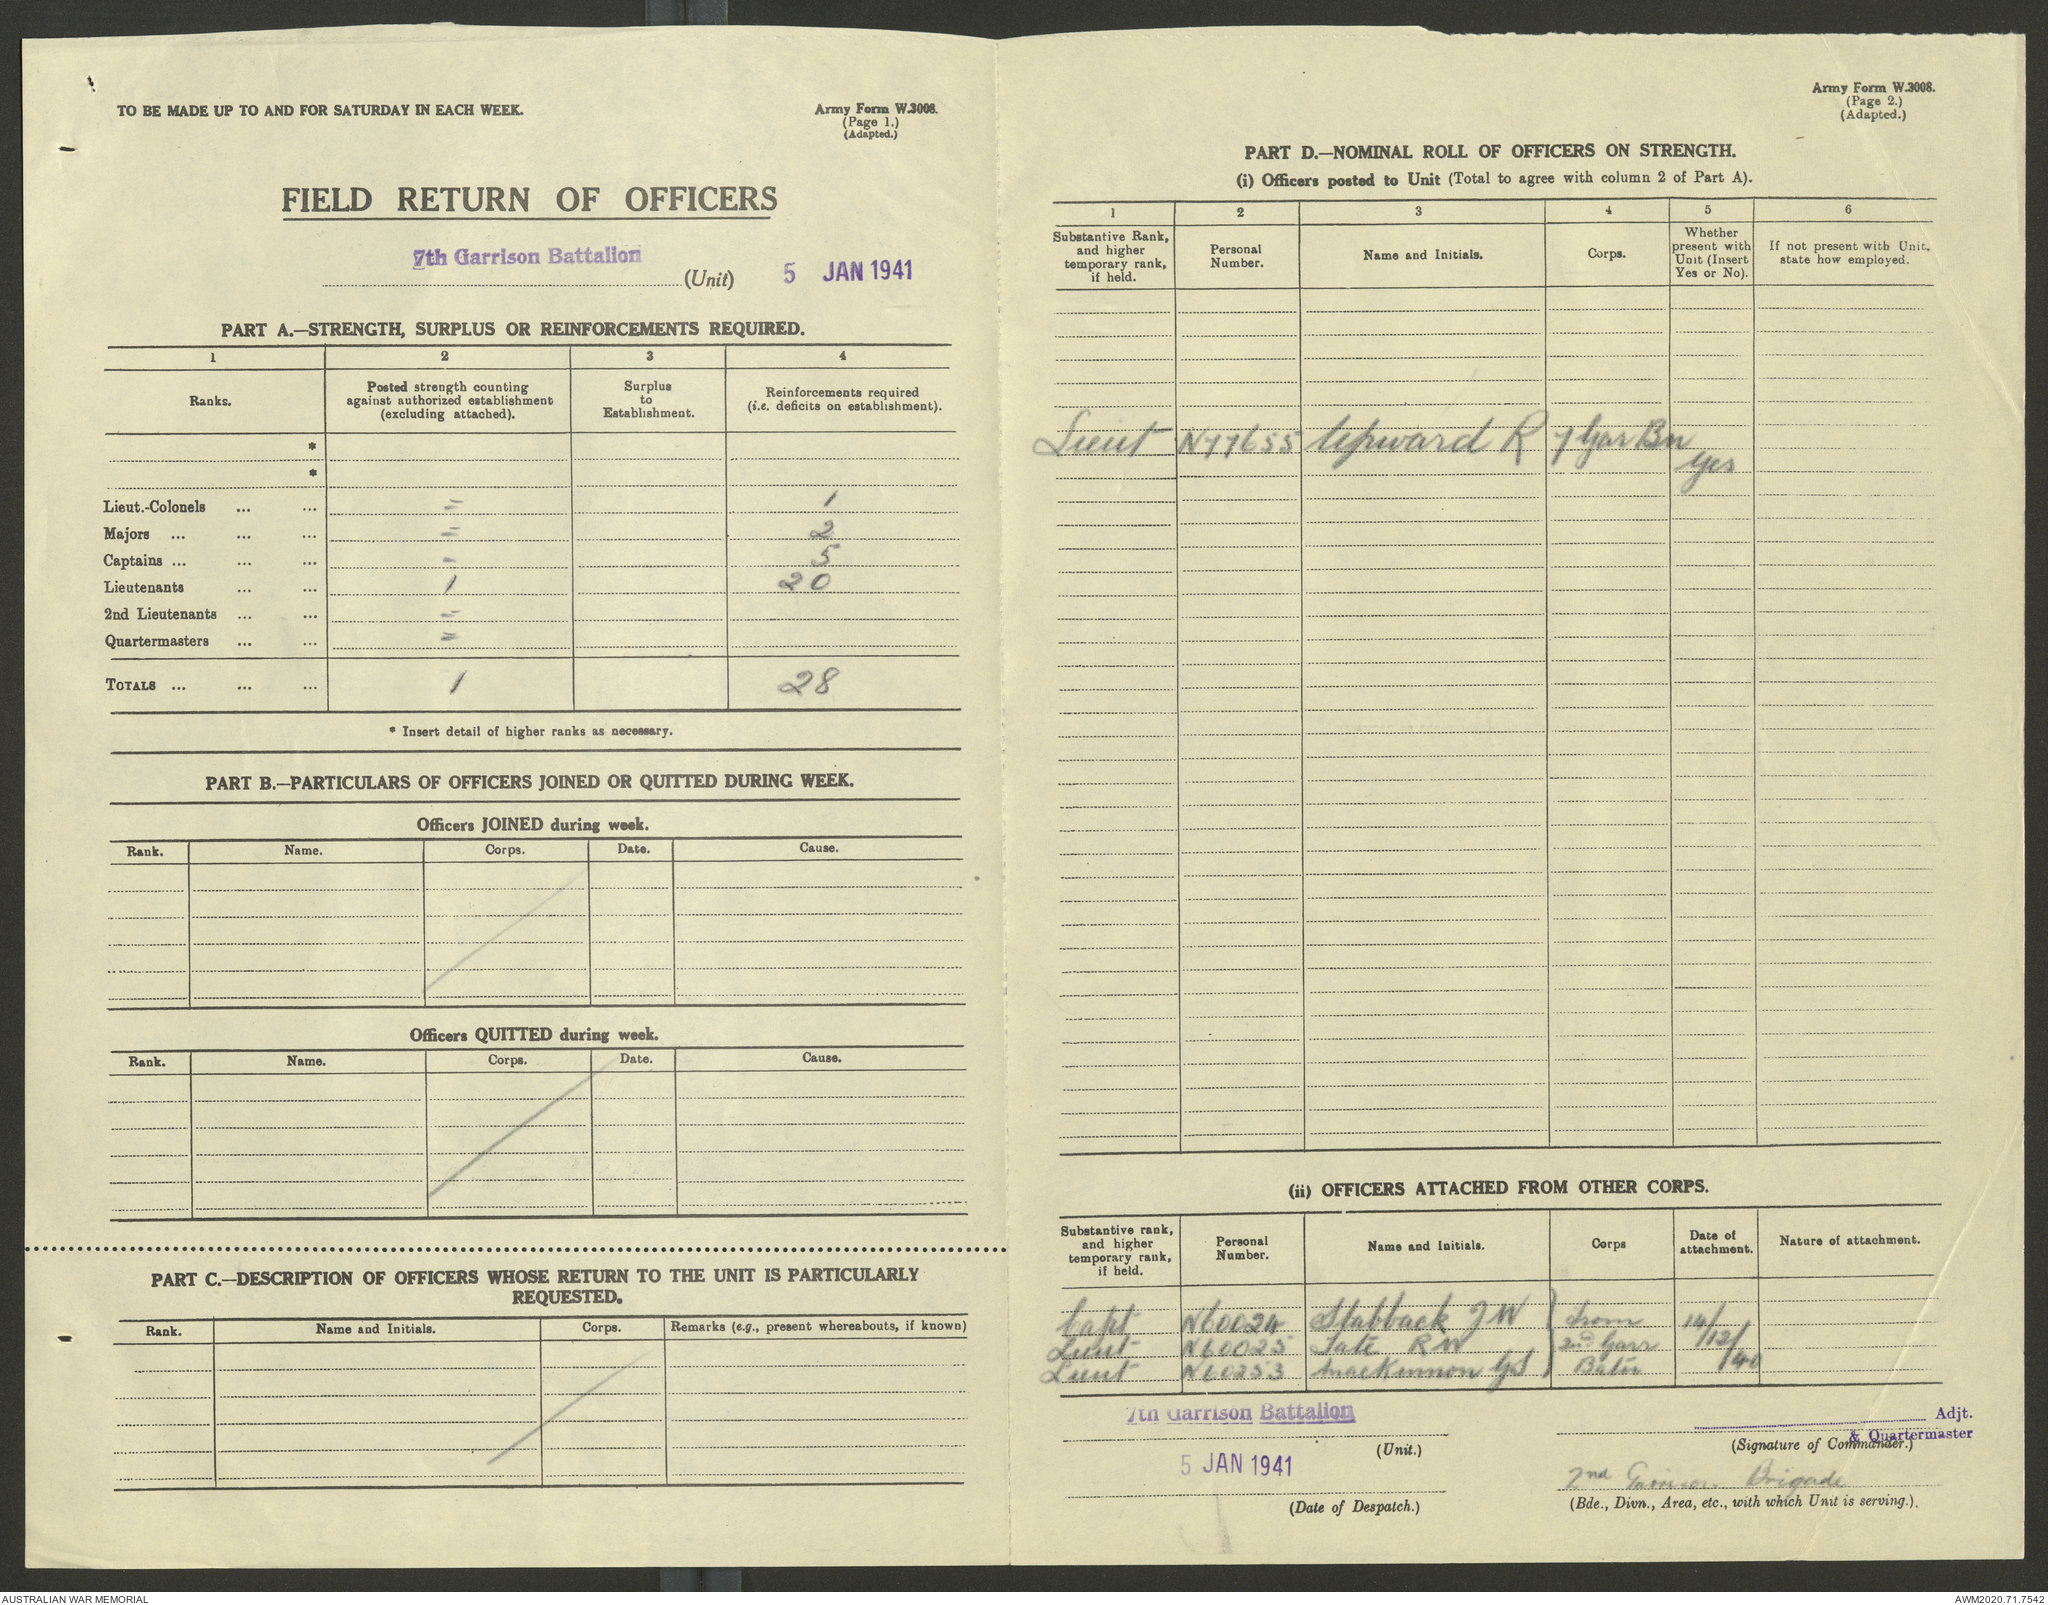 TO BE MADE UP TO AND FOR SATURDAY IN EACH WEEK.
Army Form W.3008.
(Page 1.)
(Adapted.)
FIELD RETURN OF OFFICERS
7th Garrison Battalion
(Unit) 5 JAN 1941
PART A.—STRENGTH, SURPLUS OR REINFORCEMENTS REQUIRED.
1 2 3 4
Ranks. Posted strength counting against authorized establishment (excluding attached). Surplus to Establishment. Reinforcements required (i.e. deficits on establishment).
*
*
Lieut.-Colonels ... ... - 1
Majors ... ... ... - 2
Captains ... ... ... - 5
Lieutenants ... ... 1 20
2nd Lieutenants ... ... -
Quartermasters ... ... -
TOTALS ... ... ... 1 28
* Insert detail of higher ranks as necessary.
PART B.—PARTICULARS OF OFFICERS JOINED OR QUITTED DURING WEEK.
Officers JOINED during week.
Rank. Name. Corps. Date. Cause.
Officers QUITTED during week.
Rank. Name. Corps. Date. Cause.
PART C.—DESCRIPTION OF OFFICERS WHOSE RETURN TO THE UNIT IS PARTICULARLY
REQUESTED.
Rank. Name and Initials. Corps. Remarks (e.g., present whereabouts, if known)
Army Form W.3008.
(Page 2.)
(Adapted.)
PART D.—NOMINAL ROLL OF OFFICERS ON STRENGTH.
(i) Officers posted to Unit (Total to agree with column 2 of Part A).
1 2 3 4 5 6
Substantive Rank, and higher temporary rank, if held. Personal Number. Name and Initials. Corps. Whether present with Unit (Insert Yes or No). If not present with Unit, state how employed.
Lieut N77655 Upward R 7 Gar Bn yes
(ii) OFFICERS ATTACHED FROM OTHER CORPS.
Substantive rank, and higher temporary rank, if held. Personal Number. Name and Initials. Corps Date of attachment. Nature of attachment.
Capt N60024 Stabback J W from 14/12/40
Lieut N60025 Tate R W 2nd Garr
Lieut N60253 MacKinnon G S Batn
7th Garrison Battalion
(Unit.)
5 JAN 1941
(Date of Despatch.)
Adjt.
& Quartermaster
(Signature of Commander.)
2nd Garrison Brigade
(Bde., Divn., Area, etc., with which Unit is serving.)
AUSTRALIAN WAR MEMORIAL
AWM2020.71.7542